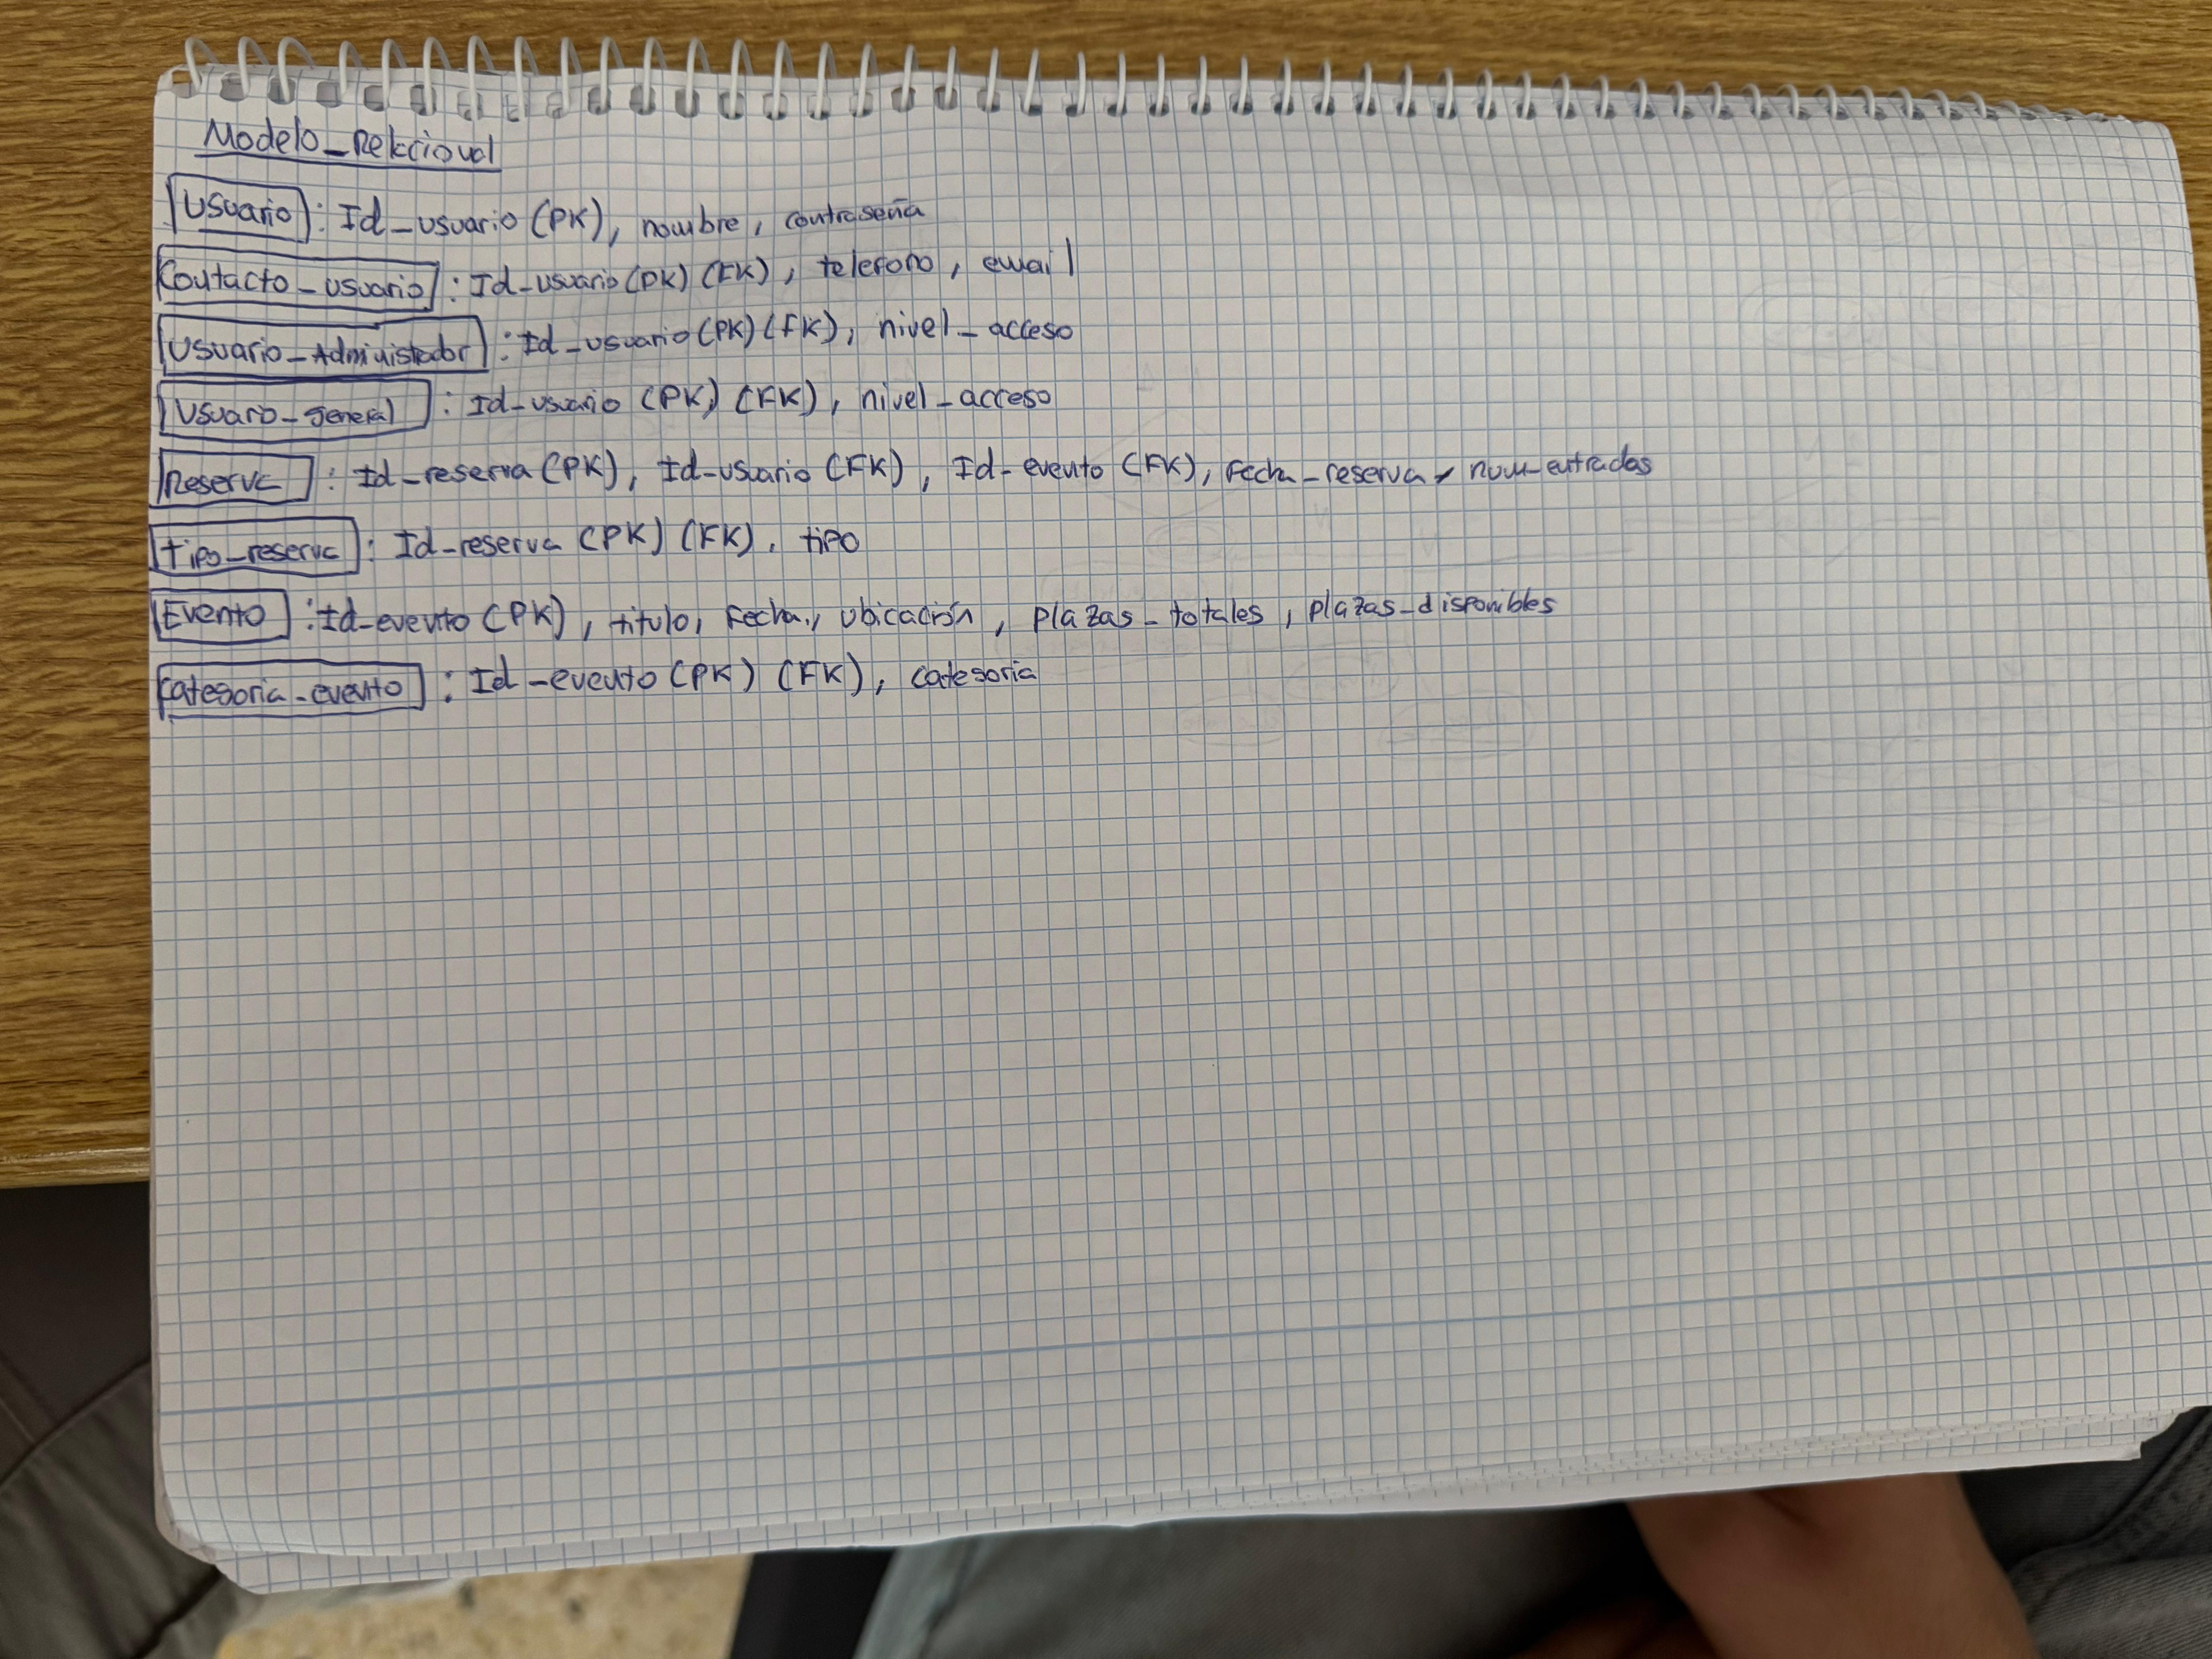 Modelo_Relacional
Usuario : Id_usuario (PK), nombre, contraseña
Contacto_usuario : Id_usuario (PK) (FK), telefono, email
Usuario_Administador : Id_usuario (PK) (FK), nivel_acceso
Usuaro_general : Id_usuario (PK) (FK), nivel_acceso
Reserva : Id_reserva (PK), Id_usuario (FK), Id_evento (FK), Fecha_reserva, num_entradas
tipo_reserva : Id_reserva (PK) (FK), tipo
Evento : Id_evento (PK), titulo, Fecha, ubicación, plazas_totales, plazas_disponibles
categoria_evento : Id_evento (PK) (FK), categoria